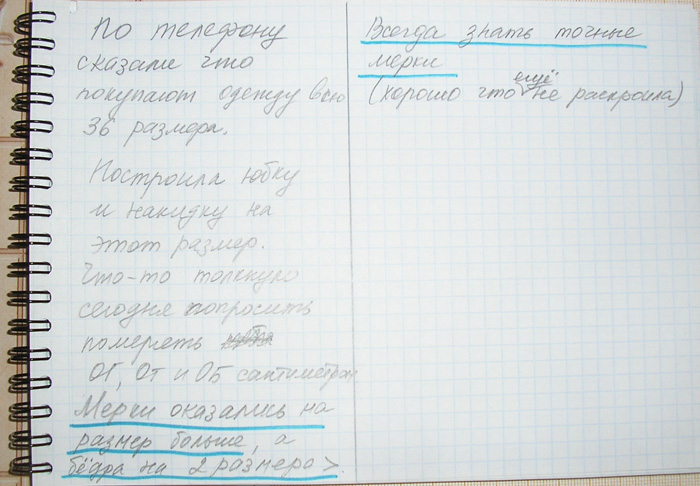 По телефону
сказали что
покупают одежду всю
36 размера.
Построила юбку
и накидку на
этот размер.
Что-то толкнуло
сегодня попросить
померeть
ОГ, От и ОБ сантиметром
Мерки оказались на
размер больше, а
бёдра на 2 размера >.
Всегда знать точные
мерки
(хорошо что ещё не раскроила)